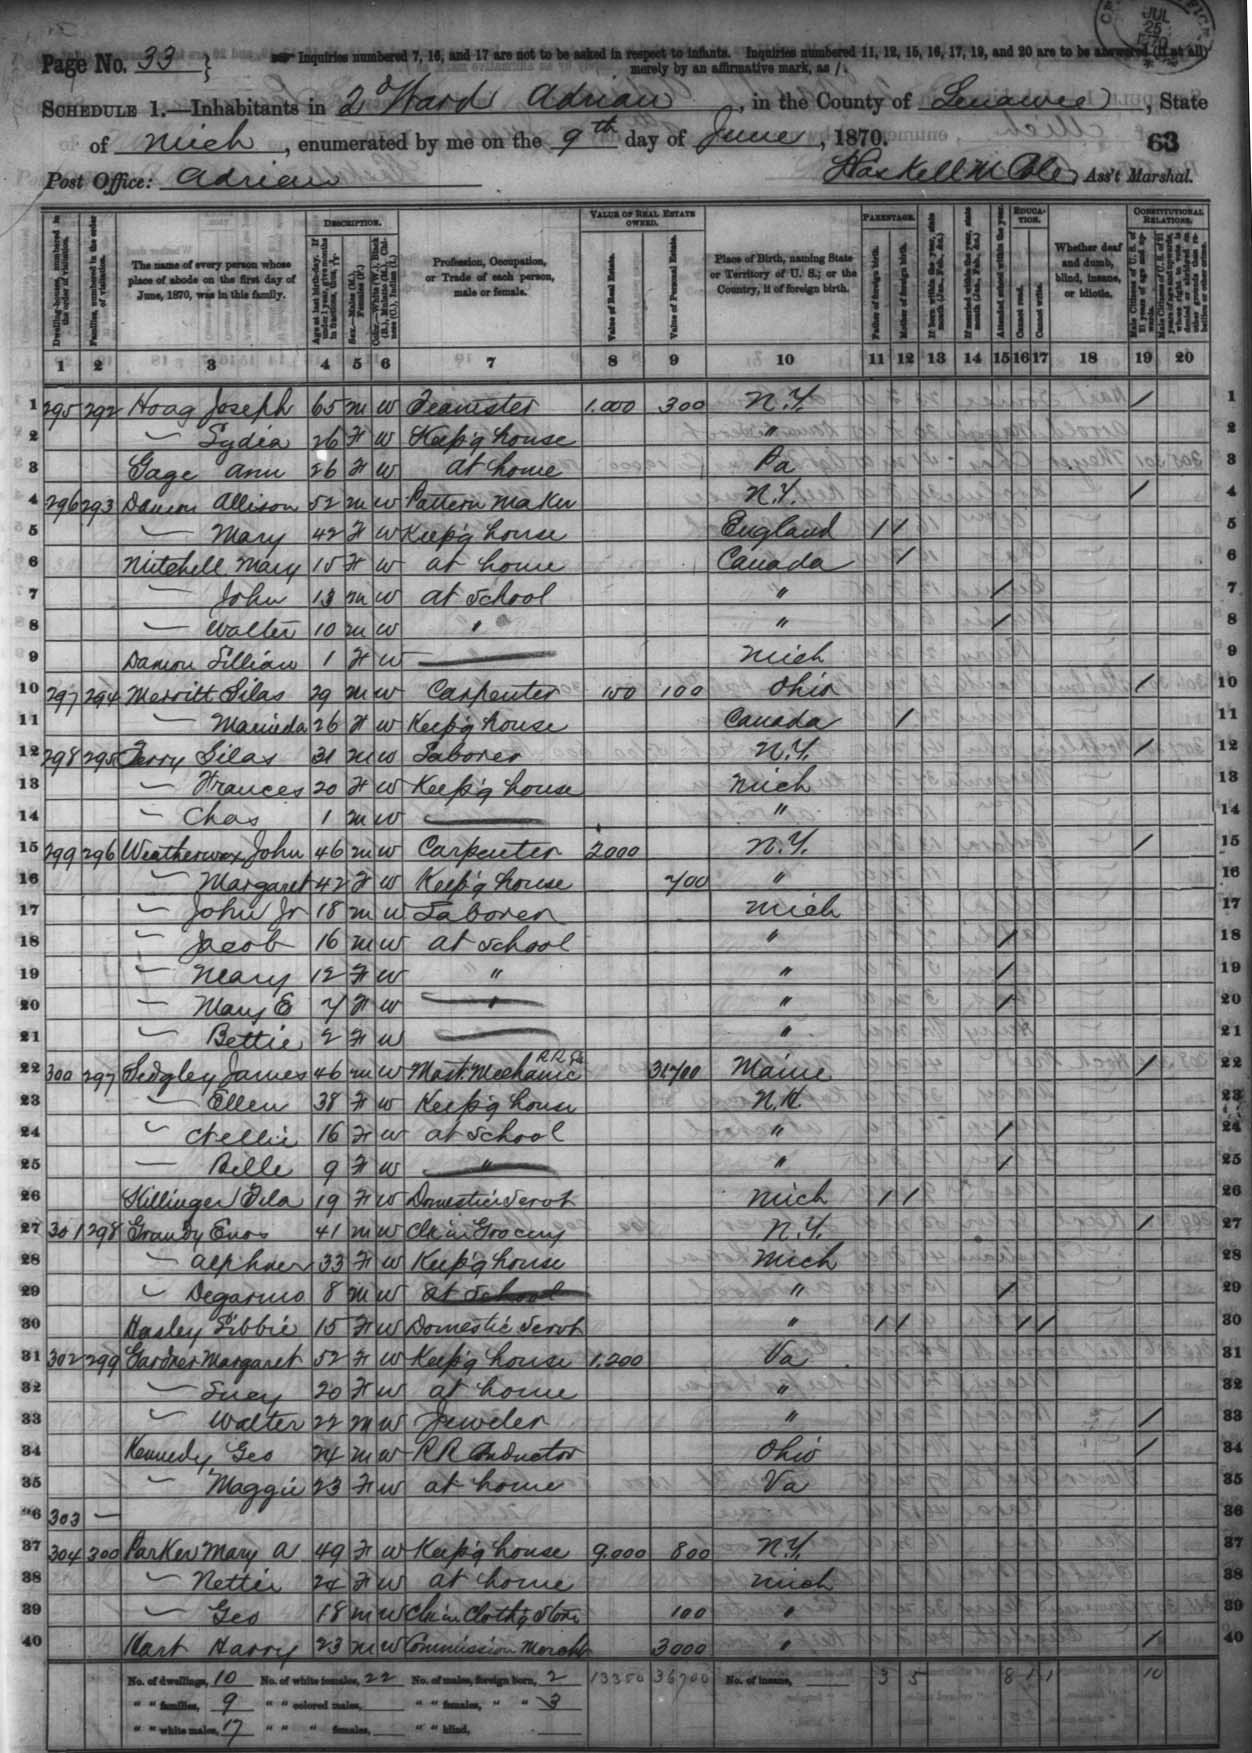 Page No. 33
Inquiries numbered 7, 16, and 17 are not to be asked in respect to infants. Inquiries numbered 11, 12, 15, 16, 17, 19, and 20 are to be answered (if at all) merely by an affirmative mark, as /.
JUL 25
SCHEDULE 1.—Inhabitants in 2d Ward Adrian, in the County of Lenawee, State
of Mich, enumerated by me on the 9th day of June, 1870.
63
Post Office: Adrian
Haskell M Cole, Ass't Marshal.
DESCRIPTION. VALUE OF REAL ESTATE OWNED. PARENTAGE. EDUCATION. CONSTITUTIONAL RELATIONS.
Dwelling-houses, numbered in the order of visitation.
Families, numbered in the order of visitation.
The name of every person whose place of abode on the first day of June, 1870, was in this family.
Age at last birth-day. If under 1 year, give months in fractions, thus, 3/12
Sex.—Males (M.), Females (F.)
Color.—White (W.), Black (B.), Mulatto (M.), Chinese (C.), Indian (I.)
Profession, Occupation, or Trade of each person, male or female.
Value of Real Estate.
Value of Personal Estate.
Place of Birth, naming State or Territory of U. S.; or the Country, if of foreign birth.
Father of foreign birth.
Mother of foreign birth.
If born within the year, state month (Jan., Feb., &c.)
If married within the year, state month (Jan., Feb., &c.)
Attended school within the year.
Cannot read.
Cannot write.
Whether deaf and dumb, blind, insane, or idiotic.
Male Citizens of U. S. of 21 years of age and upwards.
Male Citizens of U. S. of 21 years of age and upwards, whose right to vote is denied or abridged on other grounds than rebellion or other crime.
1 2 3 4 5 6 7 8 9 10 11 12 13 14 15 16 17 18 19 20
1 295 292 Hoag Joseph 65 M W Teamster 1.000 300 N.Y. / 1
2 — Lydia 26 F W Keep'g house " 2
3 Gage Ann 26 F W at home Pa 3
4 296 293 Damon Allison 52 M W Pattern Maker N.Y. / 4
5 — Mary 42 F W Keep'g house England / / 5
6 Mitchell Mary 15 F W at home Canada / 6
7 — John 13 M W at School " / 7
8 — Walter 10 M W " " / 8
9 Damon Lillian 1 F W — Mich 9
10 297 294 Merritt Silas 29 M W Carpenter 150 100 Ohio / 10
11 — 26 F W Keep'g house Canada / 11
12 298 295 Terry Silas 31 M W Laborer N.Y. / 12
13 — Frances 20 F W Keep'g house Mich 13
14 — Chas 1 M W — " 14
15 299 296 Weatherwax John 46 M W Carpenter 2000 N.Y. / 15
16 — Margaret 42 F W Keep'g house 700 " 16
17 — John Jr 18 M W Laborer Mich 17
18 — Jacob 16 M W at School " / 18
19 — Mary 12 F W " " / 19
20 — Mary E 7 F W " " / 20
21 — Bettie 2 F W — " 21
22 300 297 Sedgley James 46 M W Mast. Mechanic R.R. Maine / 22
23 — Ellen 38 F W Keep'g house N.H. 23
24 — Nellie 16 F W at School " / 24
25 — Belle 9 F W " " / 25
26 Killinger 19 F W Domestic Servt Mich / / 26
27 301 298 Grandy Enos 41 M W Clk in Grocery N.Y. / 27
28 — 33 F W Keep'g house Mich 28
29 — Degarmo 8 M W at School " / 29
30 Hasley Libbie 15 F W Domestic Servt " / / / / 30
31 302 299 Gardner Margaret 52 F W Keep'g house 1.200 Va 31
32 — Lucy 20 F W at home " 32
33 — Walter 22 M W Jeweler " / 33
34 Kennedy, Geo 24 M W R R Conductor Ohio / 34
35 — Maggie 23 F W at home Va 35
36 303 — 36
37 304 300 Parker Mary A 49 F W Keep'g house 9.000 800 N.Y. 37
38 — Nettie 24 F W at home Mich 38
39 — Geo 18 M W Clk in Cloth'g Store 100 " 39
40 Hart Harry 23 M W Commission Mercht 3000 " / 40
No. of dwellings, 10 No. of white females, 22 No. of males, foreign born, 2 13350 36700 No. of insane, 3 5 8 1 1 10
" " families, 9 " " colored males, " " females, " " 3
" " white males, 17 " " " females, " " blind,